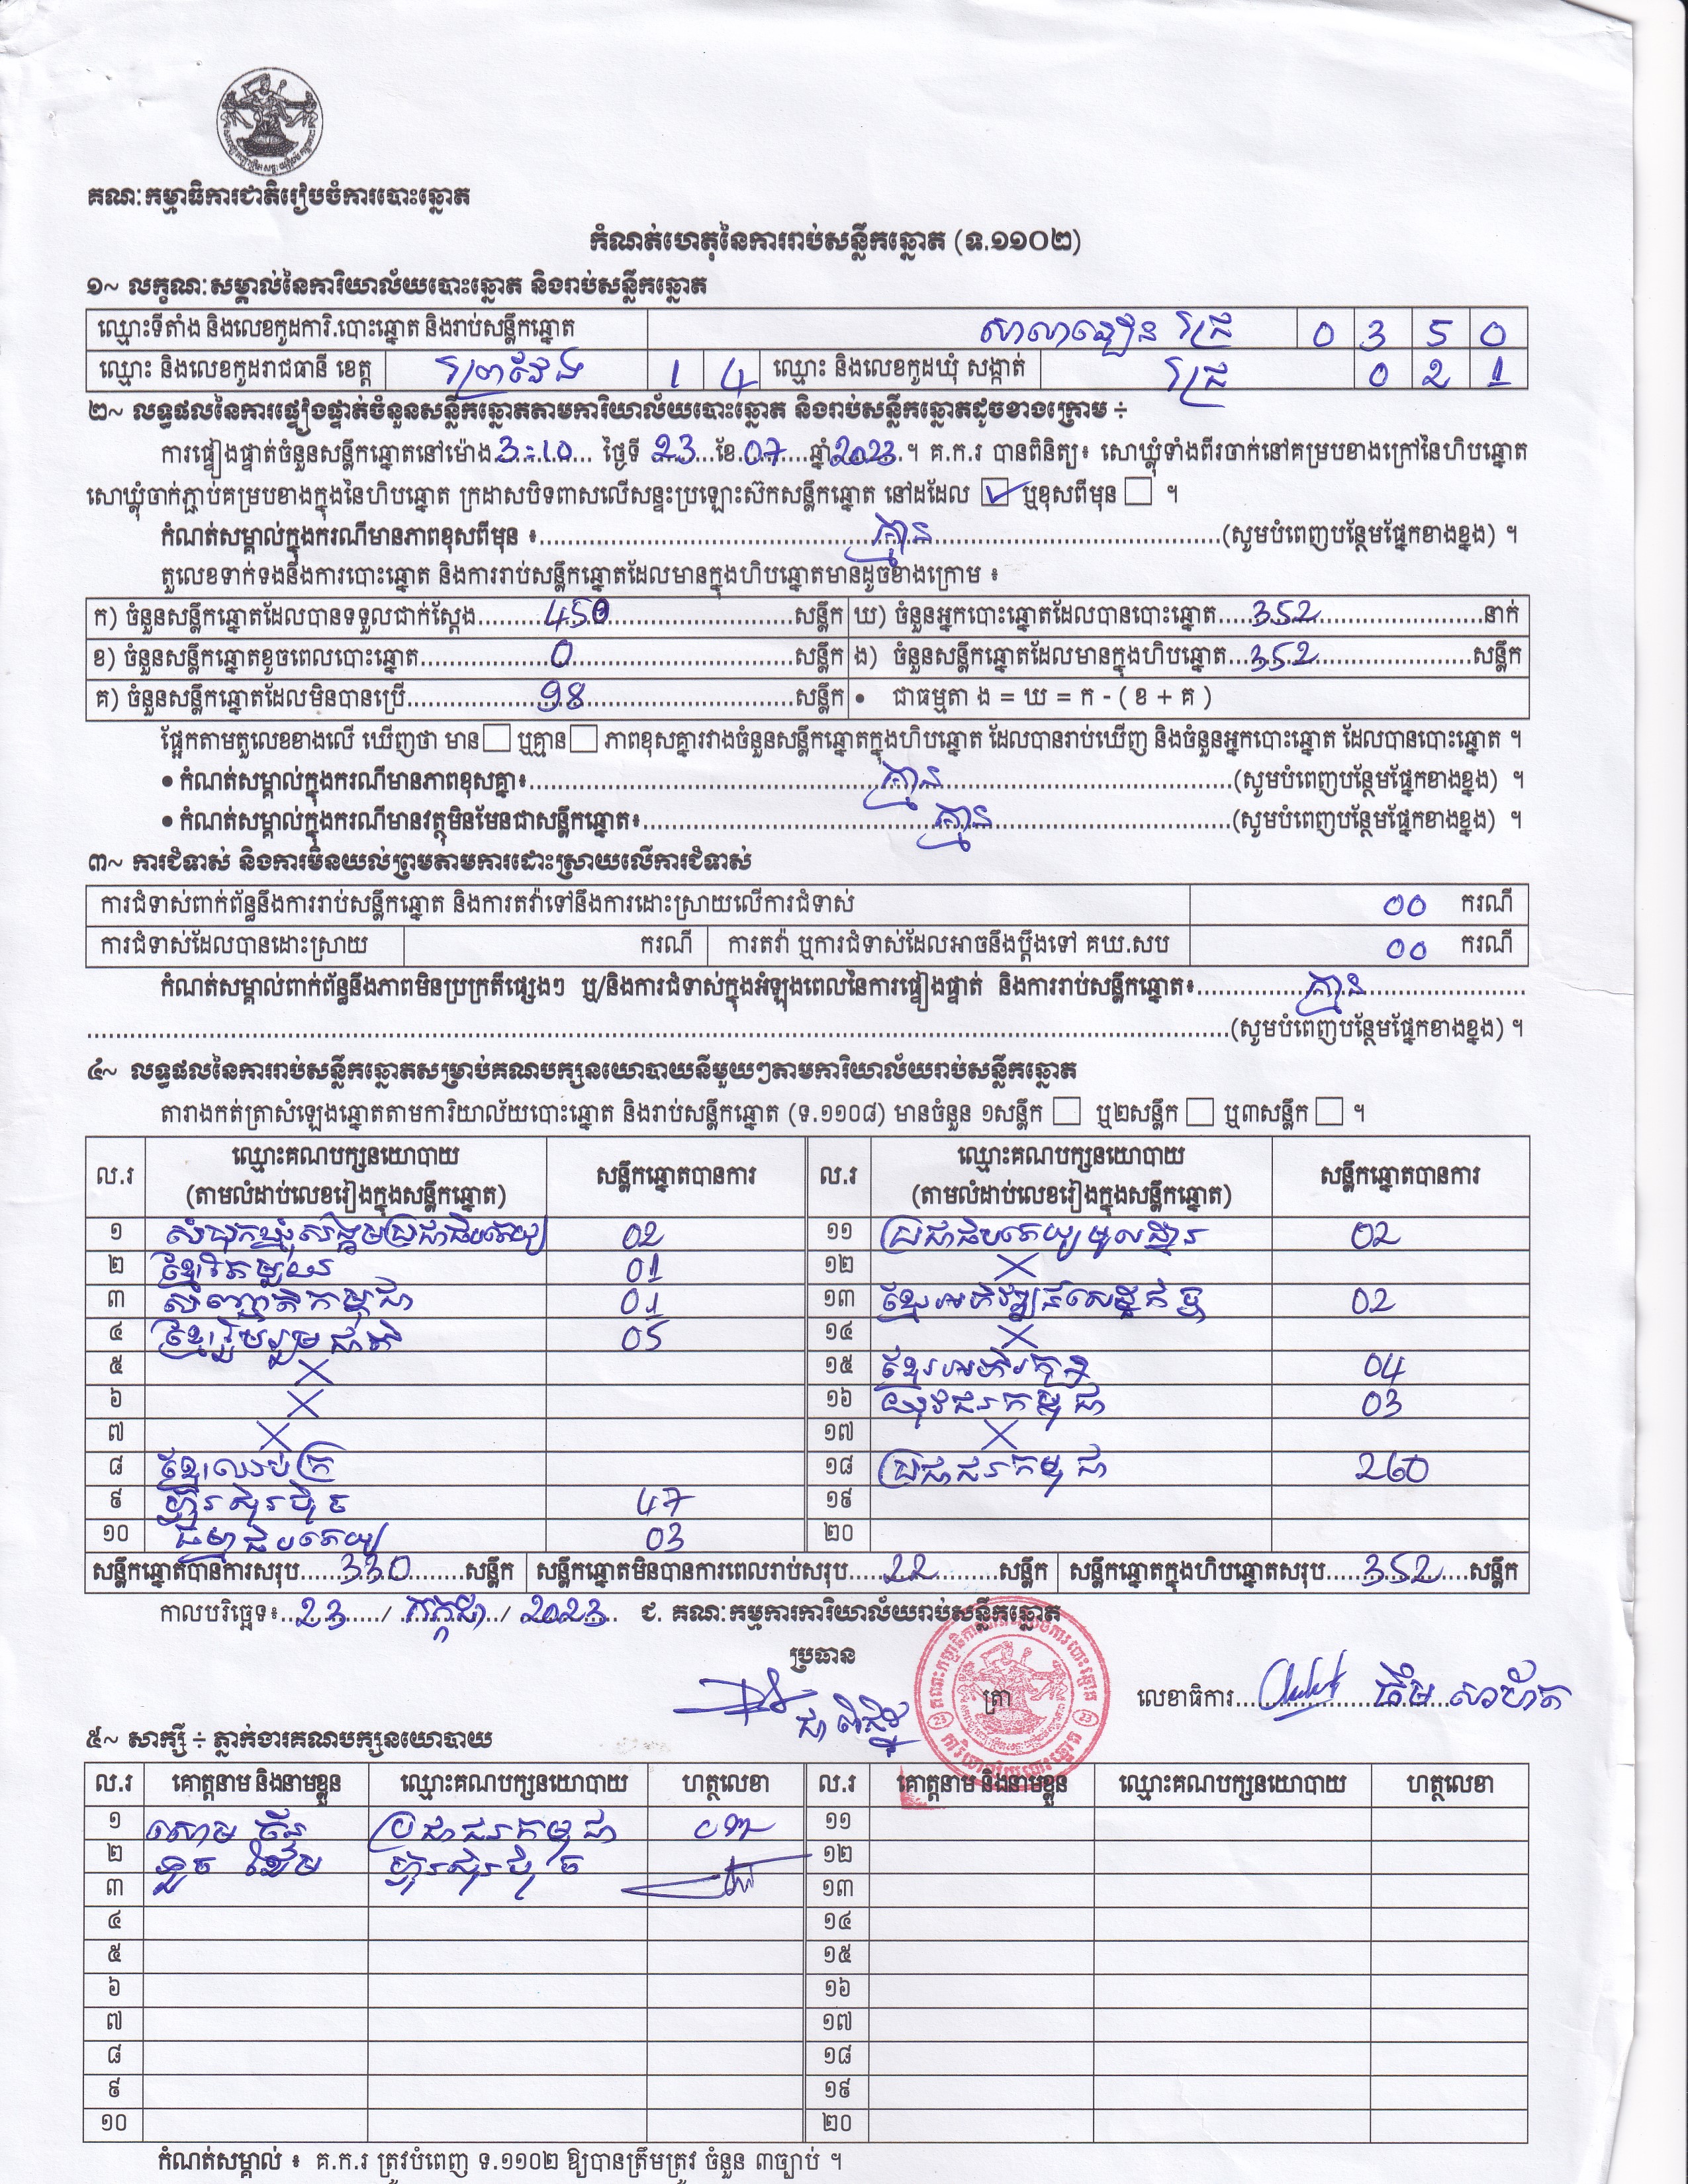 គណៈកម្មាធិការជាតិរៀបចំការបោះឆ្នោត
កំណត់ហេតុនៃការរាប់សន្លឹកឆ្នោត (ទ.១១០២)
១~ លក្ខណៈសម្គាល់នៃការិយាល័យបោះឆ្នោត និងរាប់សន្លឹកឆ្នោត
ឈ្មោះទីតាំង និងលេខកូដការិ.បោះឆ្នោត និងរាប់សន្លឹកឆ្នោត 0 3 5 0
ឈ្មោះ និងលេខកូដរាជធានី ខេត្ត ព្រៃវែង 1 4 ឈ្មោះ និងលេខកូដឃុំ សង្កាត់ 0 2 1
២~ លទ្ធផលនៃការផ្ទៀងផ្ទាត់ចំនួនសន្លឹកឆ្នោតតាមការិយាល័យបោះឆ្នោត និងរាប់សន្លឹកឆ្នោតដូចខាងក្រោម ÷
ការផ្ទៀងផ្ទាត់ចំនួនសន្លឹកឆ្នោតនៅម៉ោង 3:10 ថ្ងៃទី 23 ខែ 07 ឆ្នាំ 2023 ។ គ.ក.រ បានពិនិត្យ៖ សោឃ្លុំទាំងពីរចាក់នៅគម្របខាងក្រៅនៃហិបឆ្នោត
សោឃ្លុំចាក់ភ្ជាប់គម្របខាងក្នុងនៃហិបឆ្នោត ក្រដាសបិទពាសលើសន្ទះប្រឡោះស៊កសន្លឹកឆ្នោត នៅដដែល ☑ ឬខុសពីមុន ☐ ។
កំណត់សម្គាល់ក្នុងករណីមានភាពខុសពីមុន ៖ គ្មាន (សូមបំពេញបន្ថែមផ្នែកខាងខ្នង) ។
តួលេខទាក់ទងនឹងការបោះឆ្នោត និងការរាប់សន្លឹកឆ្នោតដែលមានក្នុងហិបឆ្នោតមានដូចខាងក្រោម ៖
ក) ចំនួនសន្លឹកឆ្នោតដែលបានទទួលជាក់ស្តែង 450 សន្លឹក ឃ) ចំនួនអ្នកបោះឆ្នោតដែលបានបោះឆ្នោត 352 នាក់
ខ) ចំនួនសន្លឹកឆ្នោតខូចពេលបោះឆ្នោត 0 សន្លឹក ង) ចំនួនសន្លឹកឆ្នោតដែលមានក្នុងហិបឆ្នោត 352 សន្លឹក
គ) ចំនួនសន្លឹកឆ្នោតដែលមិនបានប្រើ 98 សន្លឹក • ជាធម្មតា ង = ឃ = ក - ( ខ + គ )
ផ្អែកតាមតួលេខខាងលើ ឃើញថា មាន ☐ ឬគ្មាន ☐ ភាពខុសគ្នារវាងចំនួនសន្លឹកឆ្នោតក្នុងហិបឆ្នោត ដែលបានរាប់ឃើញ និងចំនួនអ្នកបោះឆ្នោត ដែលបានបោះឆ្នោត ។
• កំណត់សម្គាល់ក្នុងករណីមានភាពខុសគ្នា៖ គ្មាន (សូមបំពេញបន្ថែមផ្នែកខាងខ្នង) ។
• កំណត់សម្គាល់ក្នុងករណីមានវត្ថុមិនមែនជាសន្លឹកឆ្នោត៖ គ្មាន (សូមបំពេញបន្ថែមផ្នែកខាងខ្នង) ។
៣~ ការជំទាស់ និងការមិនយល់ព្រមតាមការដោះស្រាយលើការជំទាស់
ការជំទាស់ពាក់ព័ន្ធនឹងការរាប់សន្លឹកឆ្នោត និងការតវ៉ាទៅនឹងការដោះស្រាយលើការជំទាស់ 00 ករណី
ការជំទាស់ដែលបានដោះស្រាយ ករណី ការតវ៉ា ឬការជំទាស់ដែលអាចនឹងប្តឹងទៅ គឃ.សប 00 ករណី
កំណត់សម្គាល់ពាក់ព័ន្ធនឹងភាពមិនប្រក្រតីផ្សេងៗ ឬ/និងការជំទាស់ក្នុងអំឡុងពេលនៃការផ្ទៀងផ្ទាត់ និងការរាប់សន្លឹកឆ្នោត៖ គ្មាន
(សូមបំពេញបន្ថែមផ្នែកខាងខ្នង) ។
៤~ លទ្ធផលនៃការរាប់សន្លឹកឆ្នោតសម្រាប់គណបក្សនយោបាយនីមួយៗតាមការិយាល័យរាប់សន្លឹកឆ្នោត
តារាងកត់ត្រាសំឡេងឆ្នោតតាមការិយាល័យបោះឆ្នោត និងរាប់សន្លឹកឆ្នោត (ទ.១១០៨) មានចំនួន ១សន្លឹក ☐ ឬ២សន្លឹក ☐ ឬ៣សន្លឹក ☐ ។
ល.រ ឈ្មោះគណបក្សនយោបាយ (តាមលំដាប់លេខរៀងក្នុងសន្លឹកឆ្នោត) សន្លឹកឆ្នោតបានការ ល.រ ឈ្មោះគណបក្សនយោបាយ (តាមលំដាប់លេខរៀងក្នុងសន្លឹកឆ្នោត) សន្លឹកឆ្នោតបានការ
១ សំបុកឃ្មុំសង្គមប្រជាធិបតេយ្យ 02 ១១ ប្រជាធិបតេយ្យមូលដ្ឋាន 02
២ ខ្មែរតែមួយ 01 ១២ ×
៣ សញ្ជាតិកម្ពុជា 01 ១៣ ខ្មែរអភិវឌ្ឍន៍សេដ្ឋកិច្ច 02
៤ ខ្មែររួបរួមជាតិ 05 ១៤ ×
៥ × ១៥ ខ្មែរអភិរក្ស 04
៦ × ១៦ យុវជនកម្ពុជា 03
៧ × ១៧ ×
៨ ខ្មែរឈប់ក្រ ១៨ ប្រជាជនកម្ពុជា 260
៩ ហ្វ៊ុនស៊ិនប៉ិច 47 ១៩
១០ ធម្មាធិបតេយ្យ 03 ២០
សន្លឹកឆ្នោតបានការសរុប 330 សន្លឹក សន្លឹកឆ្នោតមិនបានការពេលរាប់សរុប 22 សន្លឹក សន្លឹកឆ្នោតក្នុងហិបឆ្នោតសរុប 352 សន្លឹក
កាលបរិច្ឆេទ៖ 23 / កក្កដា / 2023 ជ. គណៈកម្មការការិយាល័យរាប់សន្លឹកឆ្នោត
ប្រធាន
ត្រា
លេខាធិការ
៥~ សាក្សី ÷ ភ្នាក់ងារគណបក្សនយោបាយ
ល.រ គោត្តនាម និងនាមខ្លួន ឈ្មោះគណបក្សនយោបាយ ហត្ថលេខា ល.រ គោត្តនាម និងនាមខ្លួន ឈ្មោះគណបក្សនយោបាយ ហត្ថលេខា
១ ប្រជាជនកម្ពុជា ១១
២ ហ្វ៊ុនស៊ិនប៉ិច ១២
៣ ១៣
៤ ១៤
៥ ១៥
៦ ១៦
៧ ១៧
៨ ១៨
៩ ១៩
១០ ២០
កំណត់សម្គាល់ ៖ គ.ក.រ ត្រូវបំពេញ ទ.១១០២ ឱ្យបានត្រឹមត្រូវ ចំនួន ៣ច្បាប់ ។